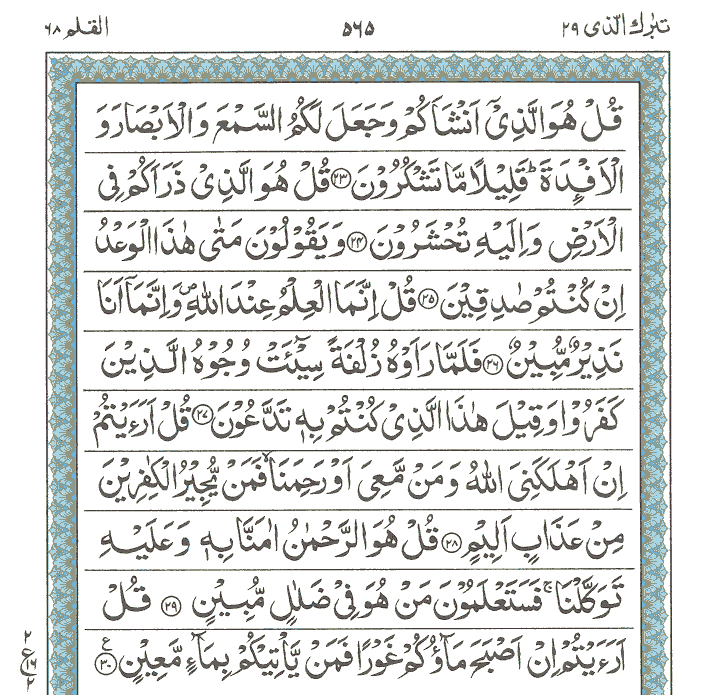 تبٰرك الّذی ٢٩
٥٦٥
القلم ٦٨
قُلْ هُوَ الَّذِیْۤ اَنْشَاَكُمْ وَجَعَلَ لَكُمُ السَّمْعَ وَالْاَبْصَارَ وَ
الْاَفْـِٕدَةَ ؕ قَلِیْلًا مَّا تَشْكُرُوْنَ ﴿٢٣﴾ قُلْ هُوَ الَّذِیْ ذَرَاَكُمْ فِی
الْاَرْضِ وَاِلَیْهِ تُحْشَرُوْنَ ﴿٢٤﴾ وَیَقُوْلُوْنَ مَتٰی هٰذَا الْوَعْدُ
اِنْ كُنْتُمْ صٰدِقِیْنَ ﴿٢٥﴾ قُلْ اِنَّمَا الْعِلْمُ عِنْدَ اللّٰهِ ۪ وَاِنَّمَاۤ اَنَا
نَذِیْرٌ مُّبِیْنٌ ﴿٢٦﴾ فَلَمَّا رَاَوْهُ زُلْفَةً سِیْٓـَٔتْ وُجُوْهُ الَّذِیْنَ
كَفَرُوْا وَقِیْلَ هٰذَا الَّذِیْ كُنْتُمْ بِهٖ تَدَّعُوْنَ ﴿٢٧﴾ قُلْ اَرَءَیْتُمْ
اِنْ اَهْلَكَنِیَ اللّٰهُ وَمَنْ مَّعِیَ اَوْ رَحِمَنَا ۙ فَمَنْ یُّجِیْرُ الْكٰفِرِیْنَ
مِنْ عَذَابٍ اَلِیْمٍ ﴿٢٨﴾ قُلْ هُوَ الرَّحْمٰنُ اٰمَنَّا بِهٖ وَعَلَیْهِ
تَوَكَّلْنَا ۚ فَسَتَعْلَمُوْنَ مَنْ هُوَ فِیْ ضَلٰلٍ مُّبِیْنٍ ﴿٢٩﴾ قُلْ
اَرَءَیْتُمْ اِنْ اَصْبَحَ مَآؤُكُمْ غَوْرًا فَمَنْ یَّاْتِیْكُمْ بِمَآءٍ مَّعِیْنٍ ﴿٣٠﴾ ع
٢
ع
١٦
٢